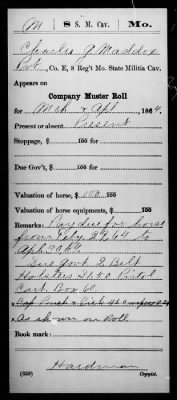 M 8 S. M. Cav. Mo.
Charles G Maddox
Pvt, Co. E, 8 Reg't Mo. State Militia Cav.
Appears on
Company Muster Roll
for Mch & Apl, 1864.
Present or absent Present
Stoppage, $ 100 for
Due Gov't, $ 100 for
Valuation of horse, $ 100 100
Valuation of horse equipments, $ 100
Remarks: Pay due for horse
from Feby 29, 64 to
Apl 30, 64
Due Govt 2 Belt
Holsters $1.50 Pistol
Cart. Box 60.
Cap Pouch & Pick
As shown on Roll
Book mark:
Hardman
(359) Copyist.